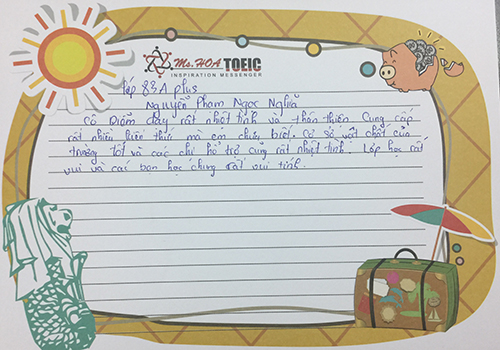 Ms.HOA TOEIC
INSPIRATION MESSENGER
Lớp 83A plus
Nguyễn Phạm Ngọc Nghĩa
Cô Diễm dạy rất nhiệt tình và thân thiện. Cung cấp
rất nhiều kiến thức mà em chưa biết. Cơ sở vật chất của
trường tốt và các chị hỗ trợ cũng rất nhiệt tình. Lớp học rất
vui và các bạn học chung rất vui tính.